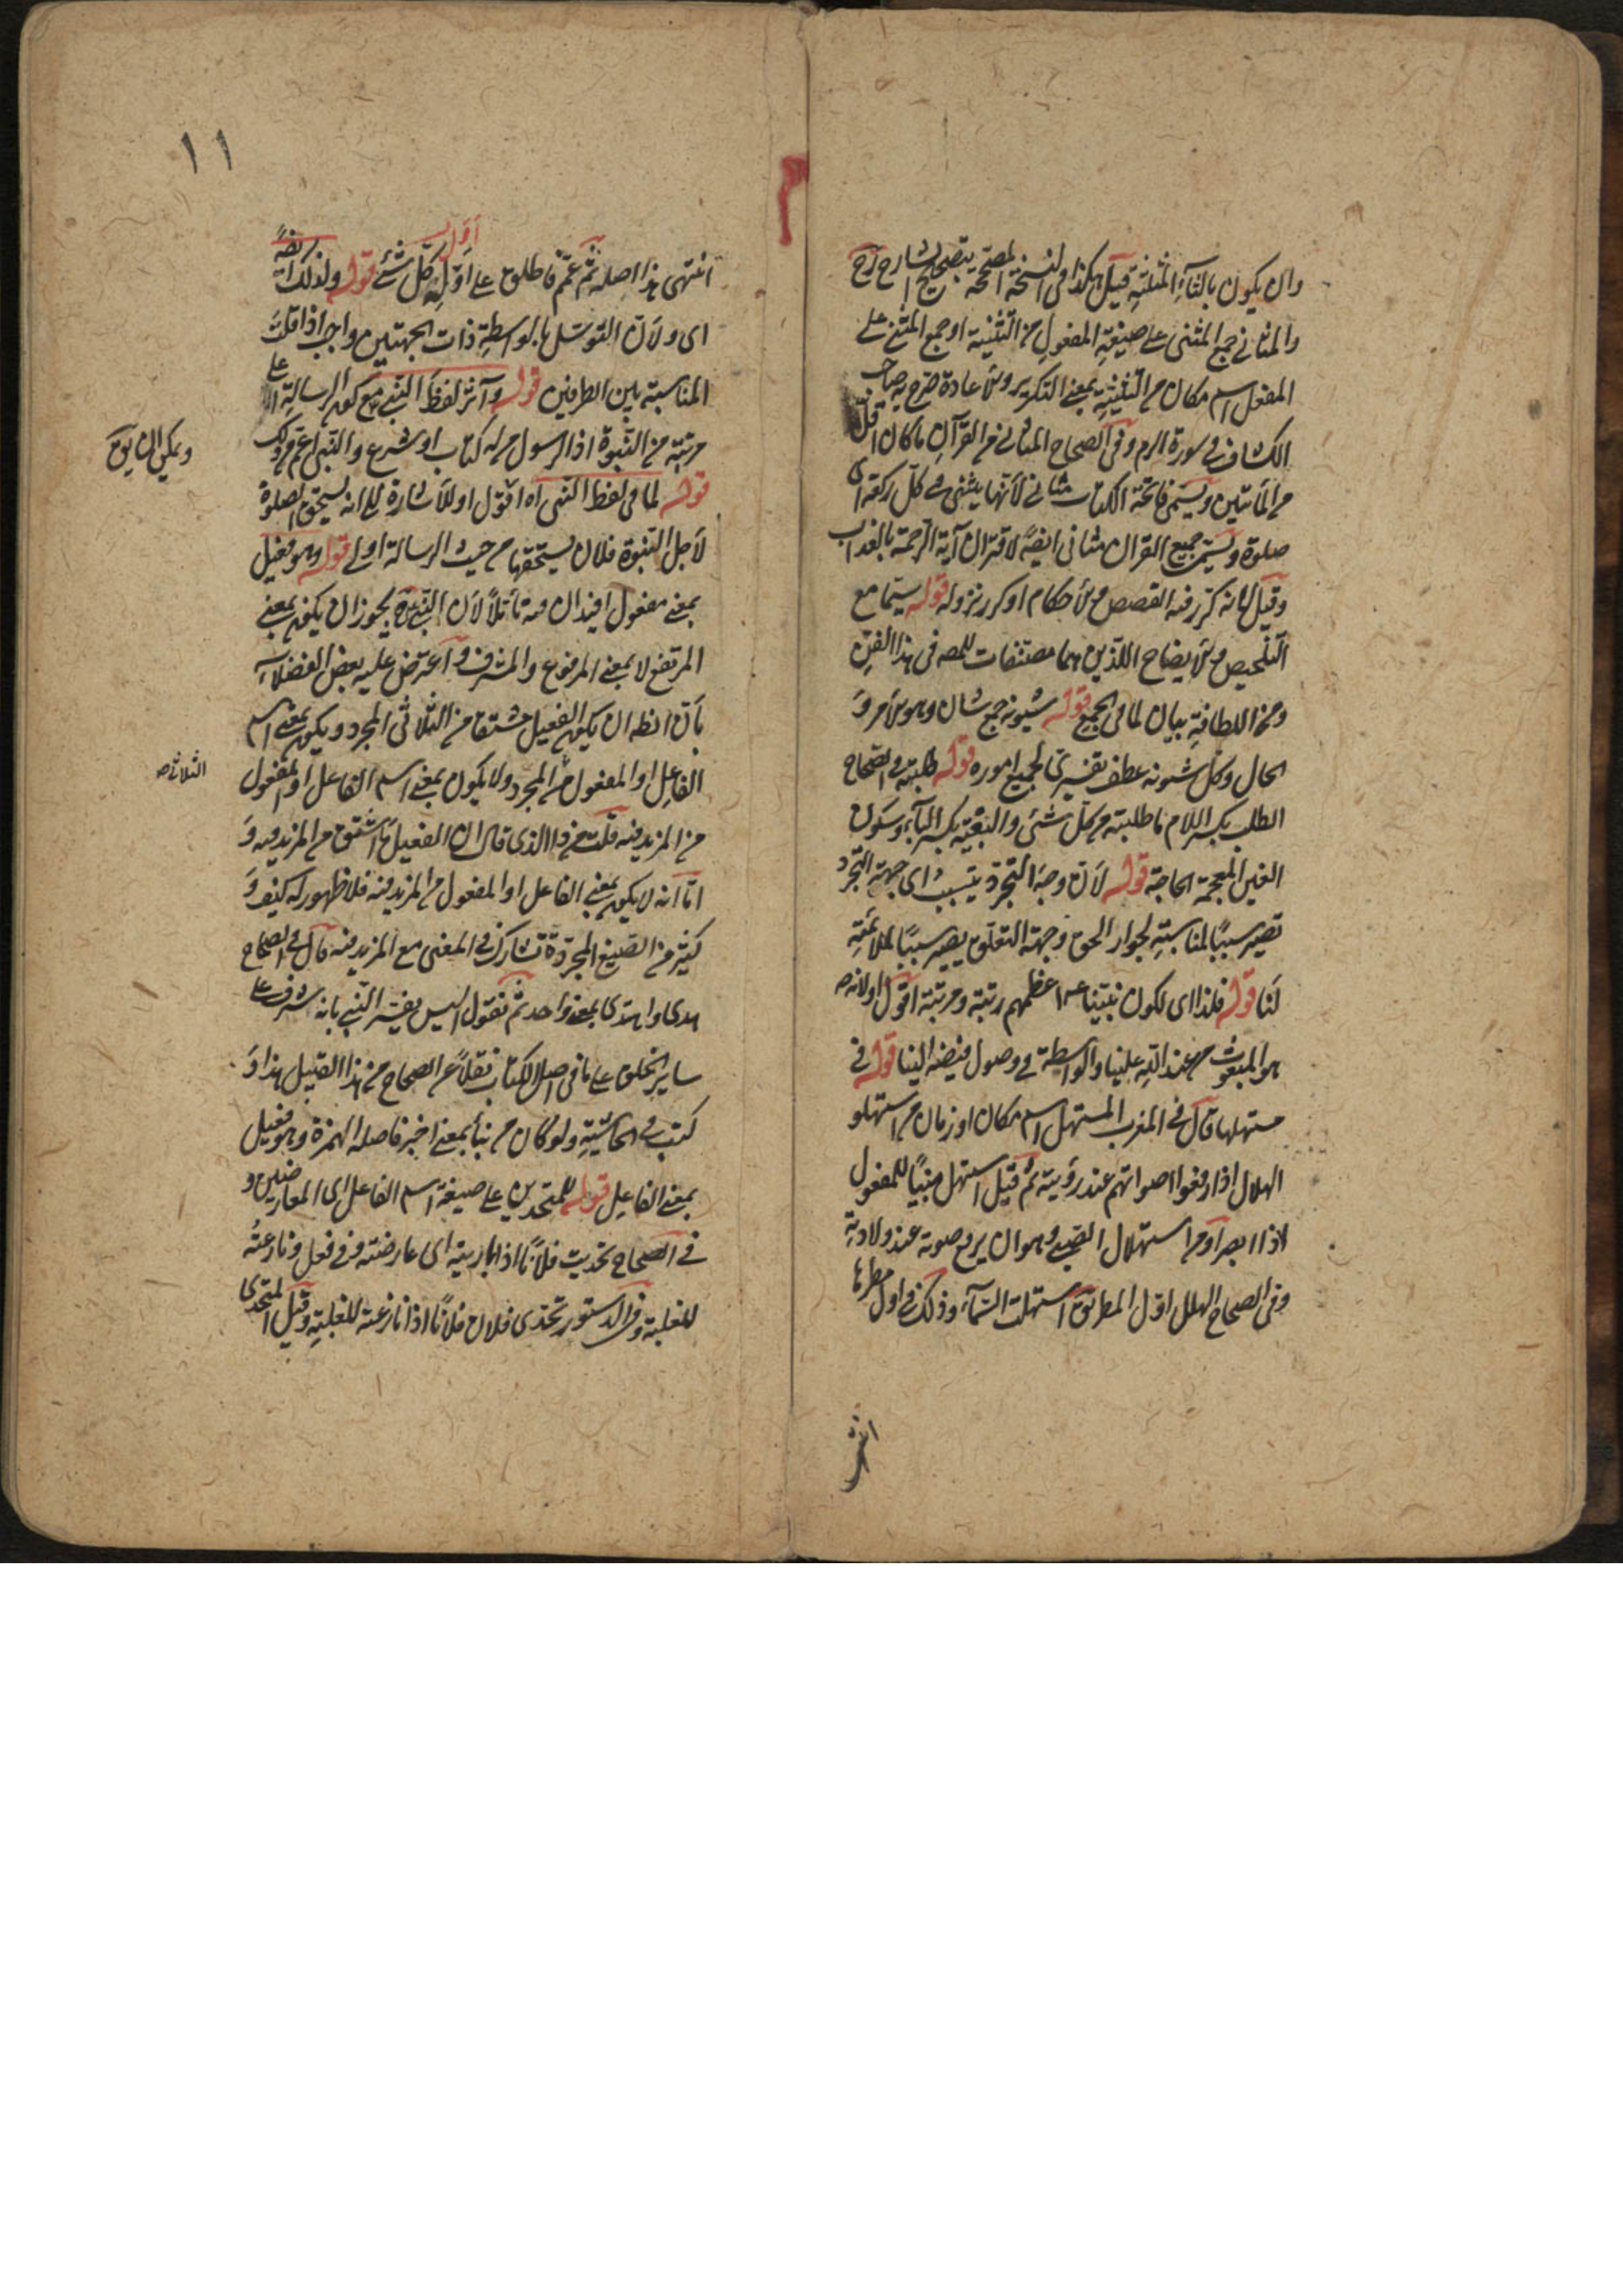 وان يكون بالثاء المثلثة قيل هكذا في النسخة المصححة بتصحيح الشارح رح
والمثاني جمع المثنى على صيغة المفعول من التثنية او جمع المثنى على
المفعل اسم مكان من التثنية بمعنى التكرير والاعادة صرح به صاحب
الكشاف في سورة الزمر وفي الصحاح المثاني من القرآن ما كان اقل
من المأتين ويسمى فاتحة الكتاب مثاني لأنها يثنى في كل ركعة اى
صلوة ويسمى جميع القرآن مثاني ايضا لاقتران آية الرحمة بالعذاب
وقيل لانه كرر فيه القصص والأحكام او كرر نزوله قوله سيما مع
التلخيص والأيضاح اللذين هما مصنفات للمصـ في هذا الفن
ومن اللطافة بيان لما في الجميع قوله شيونه جمع شان وهو الأمر و
الحال وكل شيونه عطف تفسيري لجميع اموره قوله طلبته في الصحاح
الطلب بكسر اللام ما طلبته من كل شئ والبغية بكسر الباء وسكون
الغين المعجمة الحاجة قوله لأن وجه التجرد يتسبب اى جهة التجرد
تصير سببا لمناسبته لجوار الحق وجهة التعلق يصير سببا لملائمته
لنا قوله فلذا اى لكون نبينا عم اعظمهم رتبة ومرتبة اقول او لانه
هو المبعوث من عند الله علينا والواسطة في وصول فيضه الينا قوله في
مستهلها قال في المغرب المستهل اسم مكان او زمان من استهلو
الهلال اذا رفعوا اصواتهم عند رؤيته ثم قيل استهل مبنيا للمفعول
اذا ابصر او من استهلال الصبي وهو ان يرفع صوته عند ولادته
وفي الصحاح الهلل اول المطر يق استهلت السماء وذلك في اول مطرها
انتهى
١١
انتهى هذا اصله ثم عمم فاطلق على اوله كل شئ قوله ولذلك ايضا
اول
اى ولأن التوسل بالواسطة ذات الجهتين واجب اذا قلت
المناسبة بين الطرفين قوله وآثر لفظ النبي مع كون الرسالة اعلى
مرتبة من النبوة اذ الرسول من له كتاب او شرع والنبي اعم من ذلك
ويمكن ان يق
قوله لما في لفظ النبي اه اقول او للأشارة الى انه يستحق الصلوة
لأجل النبوة فلان يستحقها من حيث الرسالة اولى قوله وهو فعيل
بمعنى مفعول افيد ان فيه تأملا لأن النبي يجوز ان يكون بمعنى
المرتفع لا بمعنى المرفوع والمشرف واعترض عليه بعض الفضلاء
بأن الظ ان يكون الفعيل مشتقا من الثلاثي المجرد ويكون بمعنى اسم
الثلاثي صـ
الفاعل او المفعول من المجرد ولا يكون بمعنى اسم الفاعل او المفعول
من المزيد فيه قلت من ذا الذي قال ان الفعيل ما اشتق من المزيد فيه و
اما انه لا يكون بمعنى الفاعل او المفعول من المزيد فيه فلا ظهور له كيف و
كثير من الصيغ المجردة تشارك في المعنى مع المزيد فيه قال في الصحاح
هدى واهتدى بمعنى واحد ثم نقول اليس يفسر النبي بانه شرف على
ساير الخلق على ما في اصل الكتاب نقلا عن الصحاح من هذا القبيل هذا و
كتب في الحاشية ولو كان من نبأ بمعنى اخبر فاصله الهمزة وهو فعيل
بمعنى الفاعل قوله للمتحدين على صيغة اسم الفاعل اى المعارضين و
في الصحاح تحديت فلانا اذا باريته اى عارضته في فعل ونازعته
للغلبة وفي الدستور تحدى فلان فلانا اذا نازعته للغلبة وقيل المتحدى